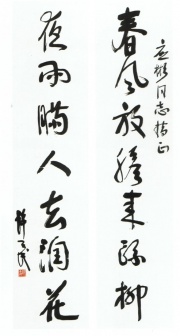 春风放胆来梳柳
夜雨瞒人去润花
同志指正